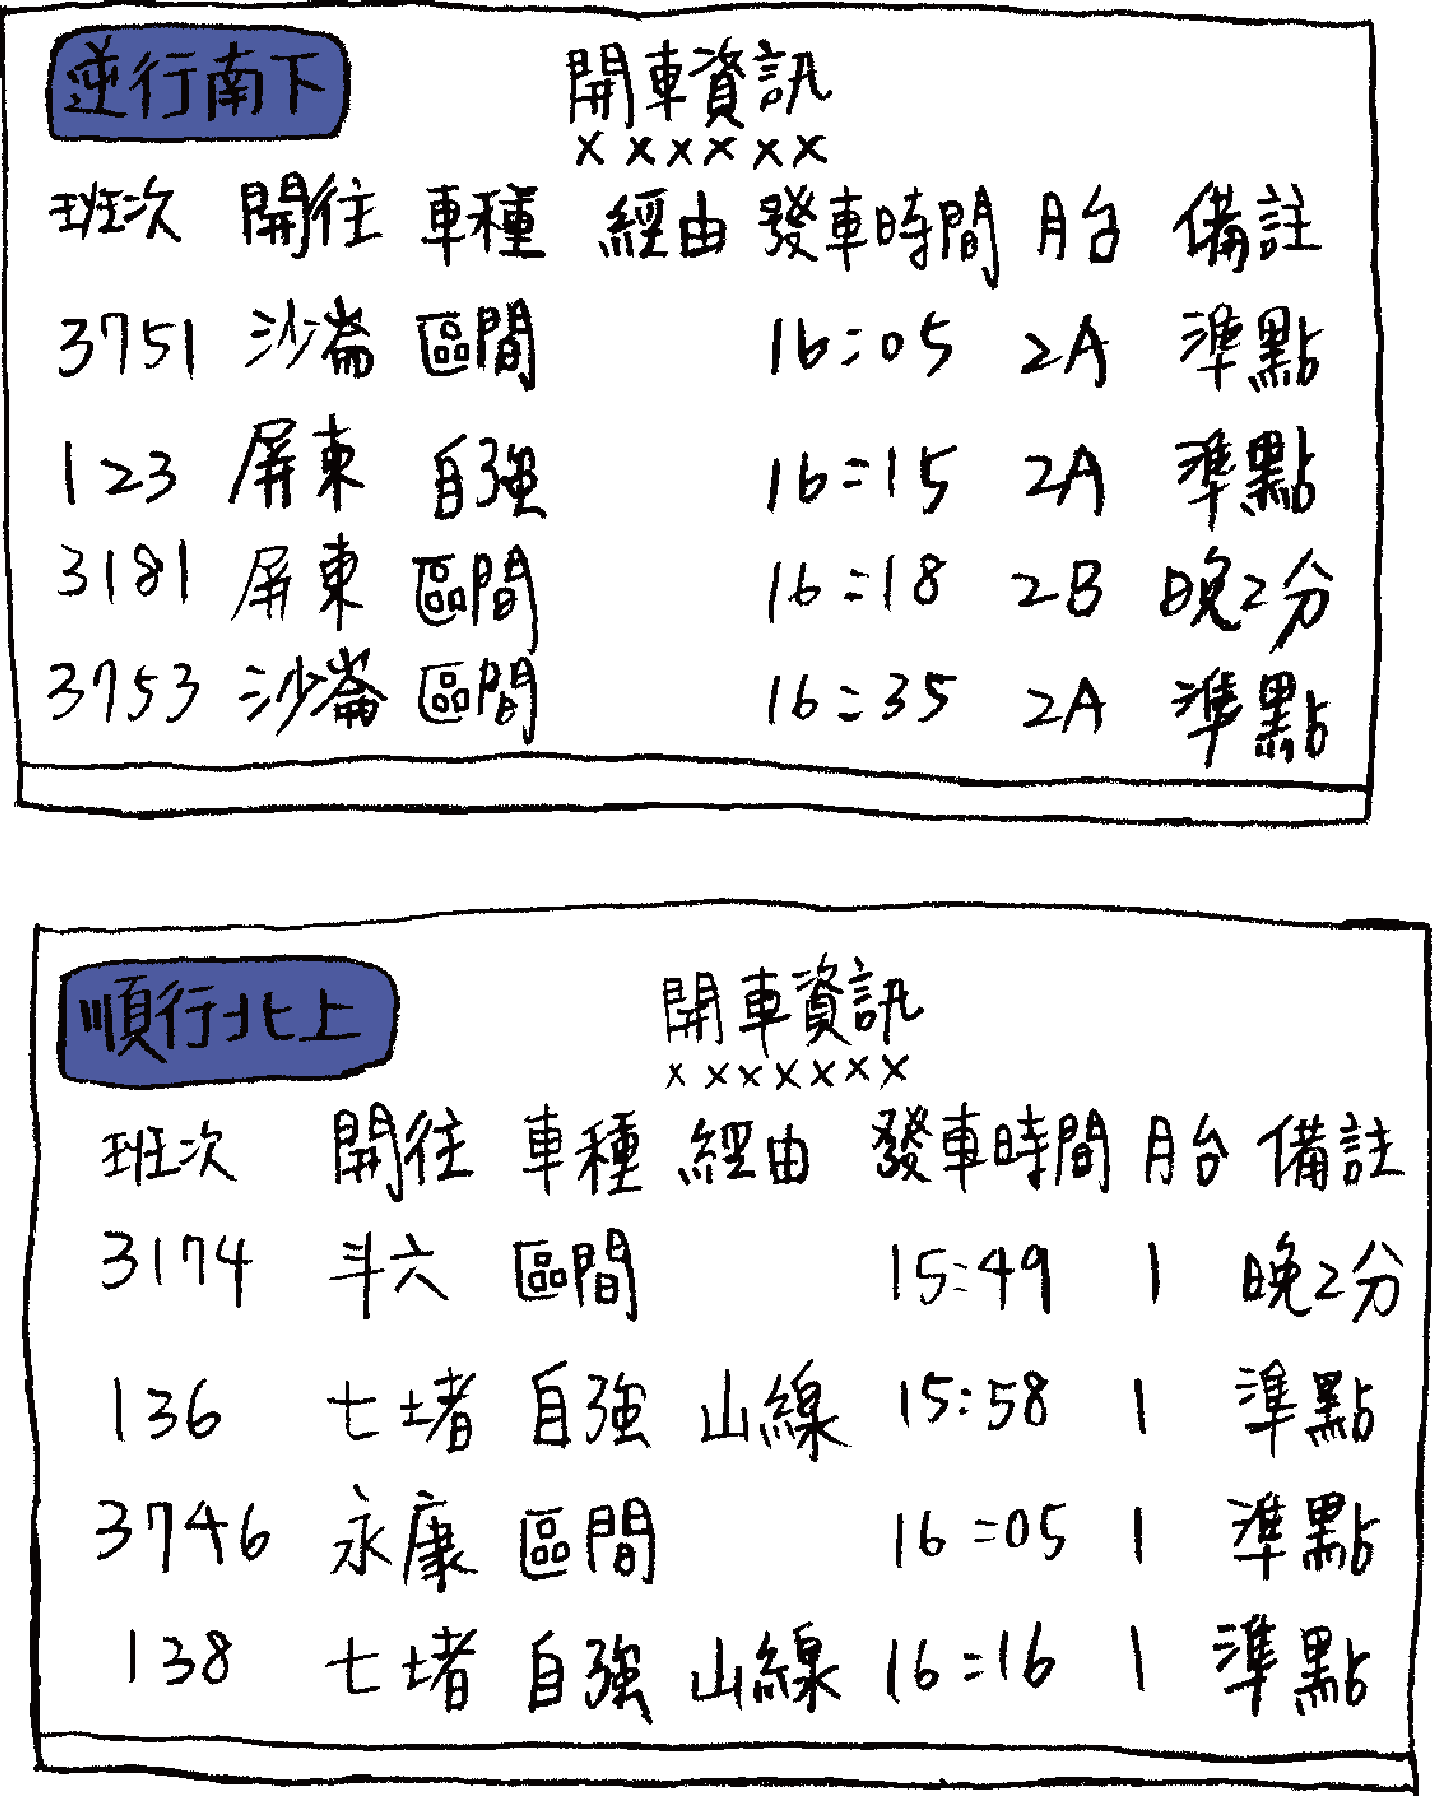 逆行南下 開車資訊
××××××
班次 開往 車種 經由 發車時間 月台 備註
3751 沙崙 區間 16:05 2A 準點
123 屏東 自強 16:15 2A 準點
3181 屏東 區間 16:18 2B 晚2分
3753 沙崙 區間 16:35 2A 準點
順行北上 開車資訊
×××××××
班次 開往 車種 經由 發車時間 月台 備註
3174 斗六 區間 15:49 1 晚2分
136 七堵 自強 山線 15:58 1 準點
3746 永康 區間 16:05 1 準點
138 七堵 自強 山線 16:16 1 準點